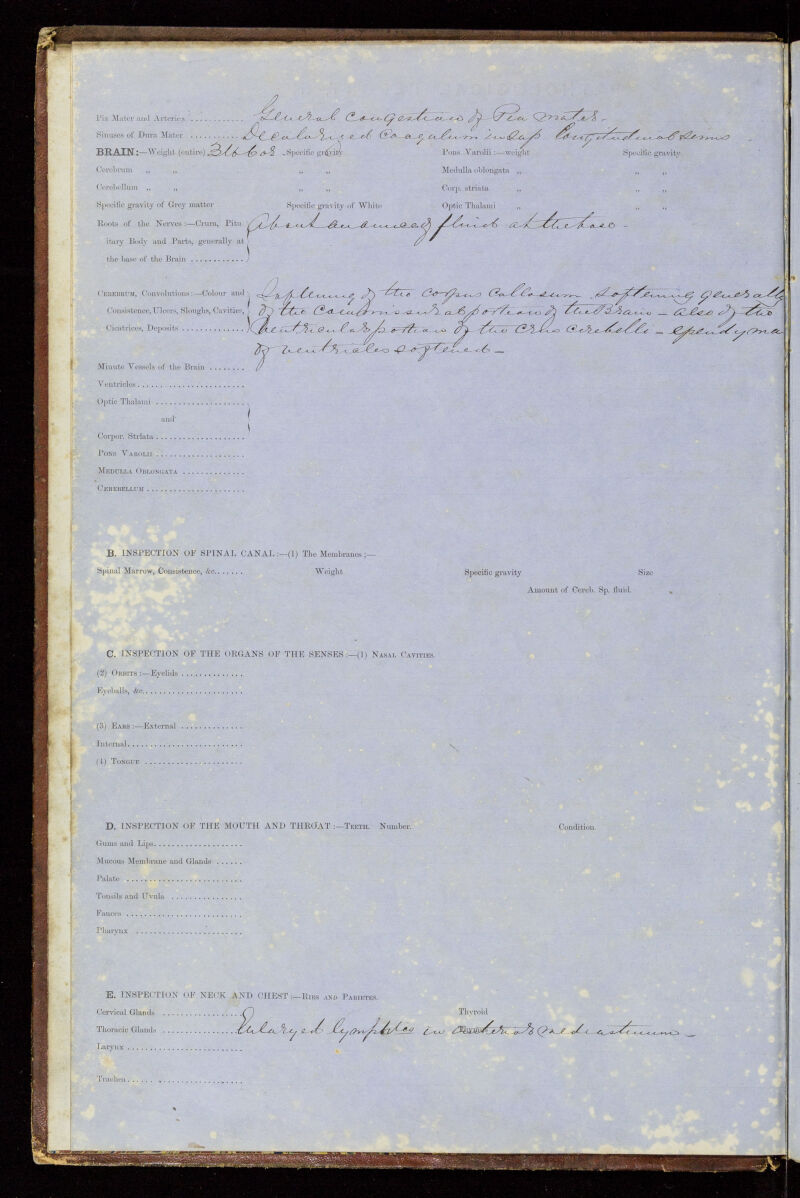 Pia Mater and Arteries ............ General congestion of Pia mater.
Sinuses of Dura Mater .......... Decolorized coagulum in sup Longitudinal sinus.
BRAIN:—Weight (entire) 3lb 6oz. Specific gravity Pons Varolii:—weight Specific gravity.
Cerebrum „ „ „ „ Medulla oblongata „ „ „
Cerebellum „ „ „ „ Corp. striata „ „ „
Specific gravity of Grey matter Specific gravity of White Optic Thalami „ „ „
Roots of the Nerves:—Crura, Pitu- About an ounce of fluid at the base.
itary Body and Parts, generally at
the base of the Brain ............
CEREBRUM, Convolutions:—Colour and Softening of the corpus callosum. Softening generally
Consistence, Ulcers, Sloughs, Cavities, of the commissural portion of the Brain — also of the
Cicatrices, Deposits .............. ventricular portion of the crus cerebelli — ependyma
of ventricles softened —
Minute Vessels of the Brain ........
Ventricles........................
Optic Thalami ....................
and
Corpor. Striata....................
PONS VAROLII ....................
MEDULLA OBLONGATA ..............
CEREBELLUM......................
B. INSPECTION OF SPINAL CANAL:—(1) The Membranes;—
Spinal Marrow, Consistence, &c....... Weight Specific gravity Size
Amount of Cereb. Sp. fluid.
C. INSPECTION OF THE ORGANS OF THE SENSES:—(1) NASAL CAVITIES.
(2) ORBITS:—Eyelids ..............
Eyeballs, &c......................
(3) EARS:—External ..............
Internal..........................
(4) TONGUE ......................
D. INSPECTION OF THE MOUTH AND THROAT:—TEETH. Number. Condition.
Gums and Lips....................
Mucous Membrane and Glands ......
Palate ..........................
Tonsils and Uvula ................
Fauces ..........................
Pharynx ........................
E. INSPECTION OF NECK AND CHEST:—RIBS AND PARIETES.
Cervical Glands .................. Thyroid
Thoracic Glands .................. Enlarged lymphatics in anterior mediastinum —
Larynx ..........................
Trachea..........................